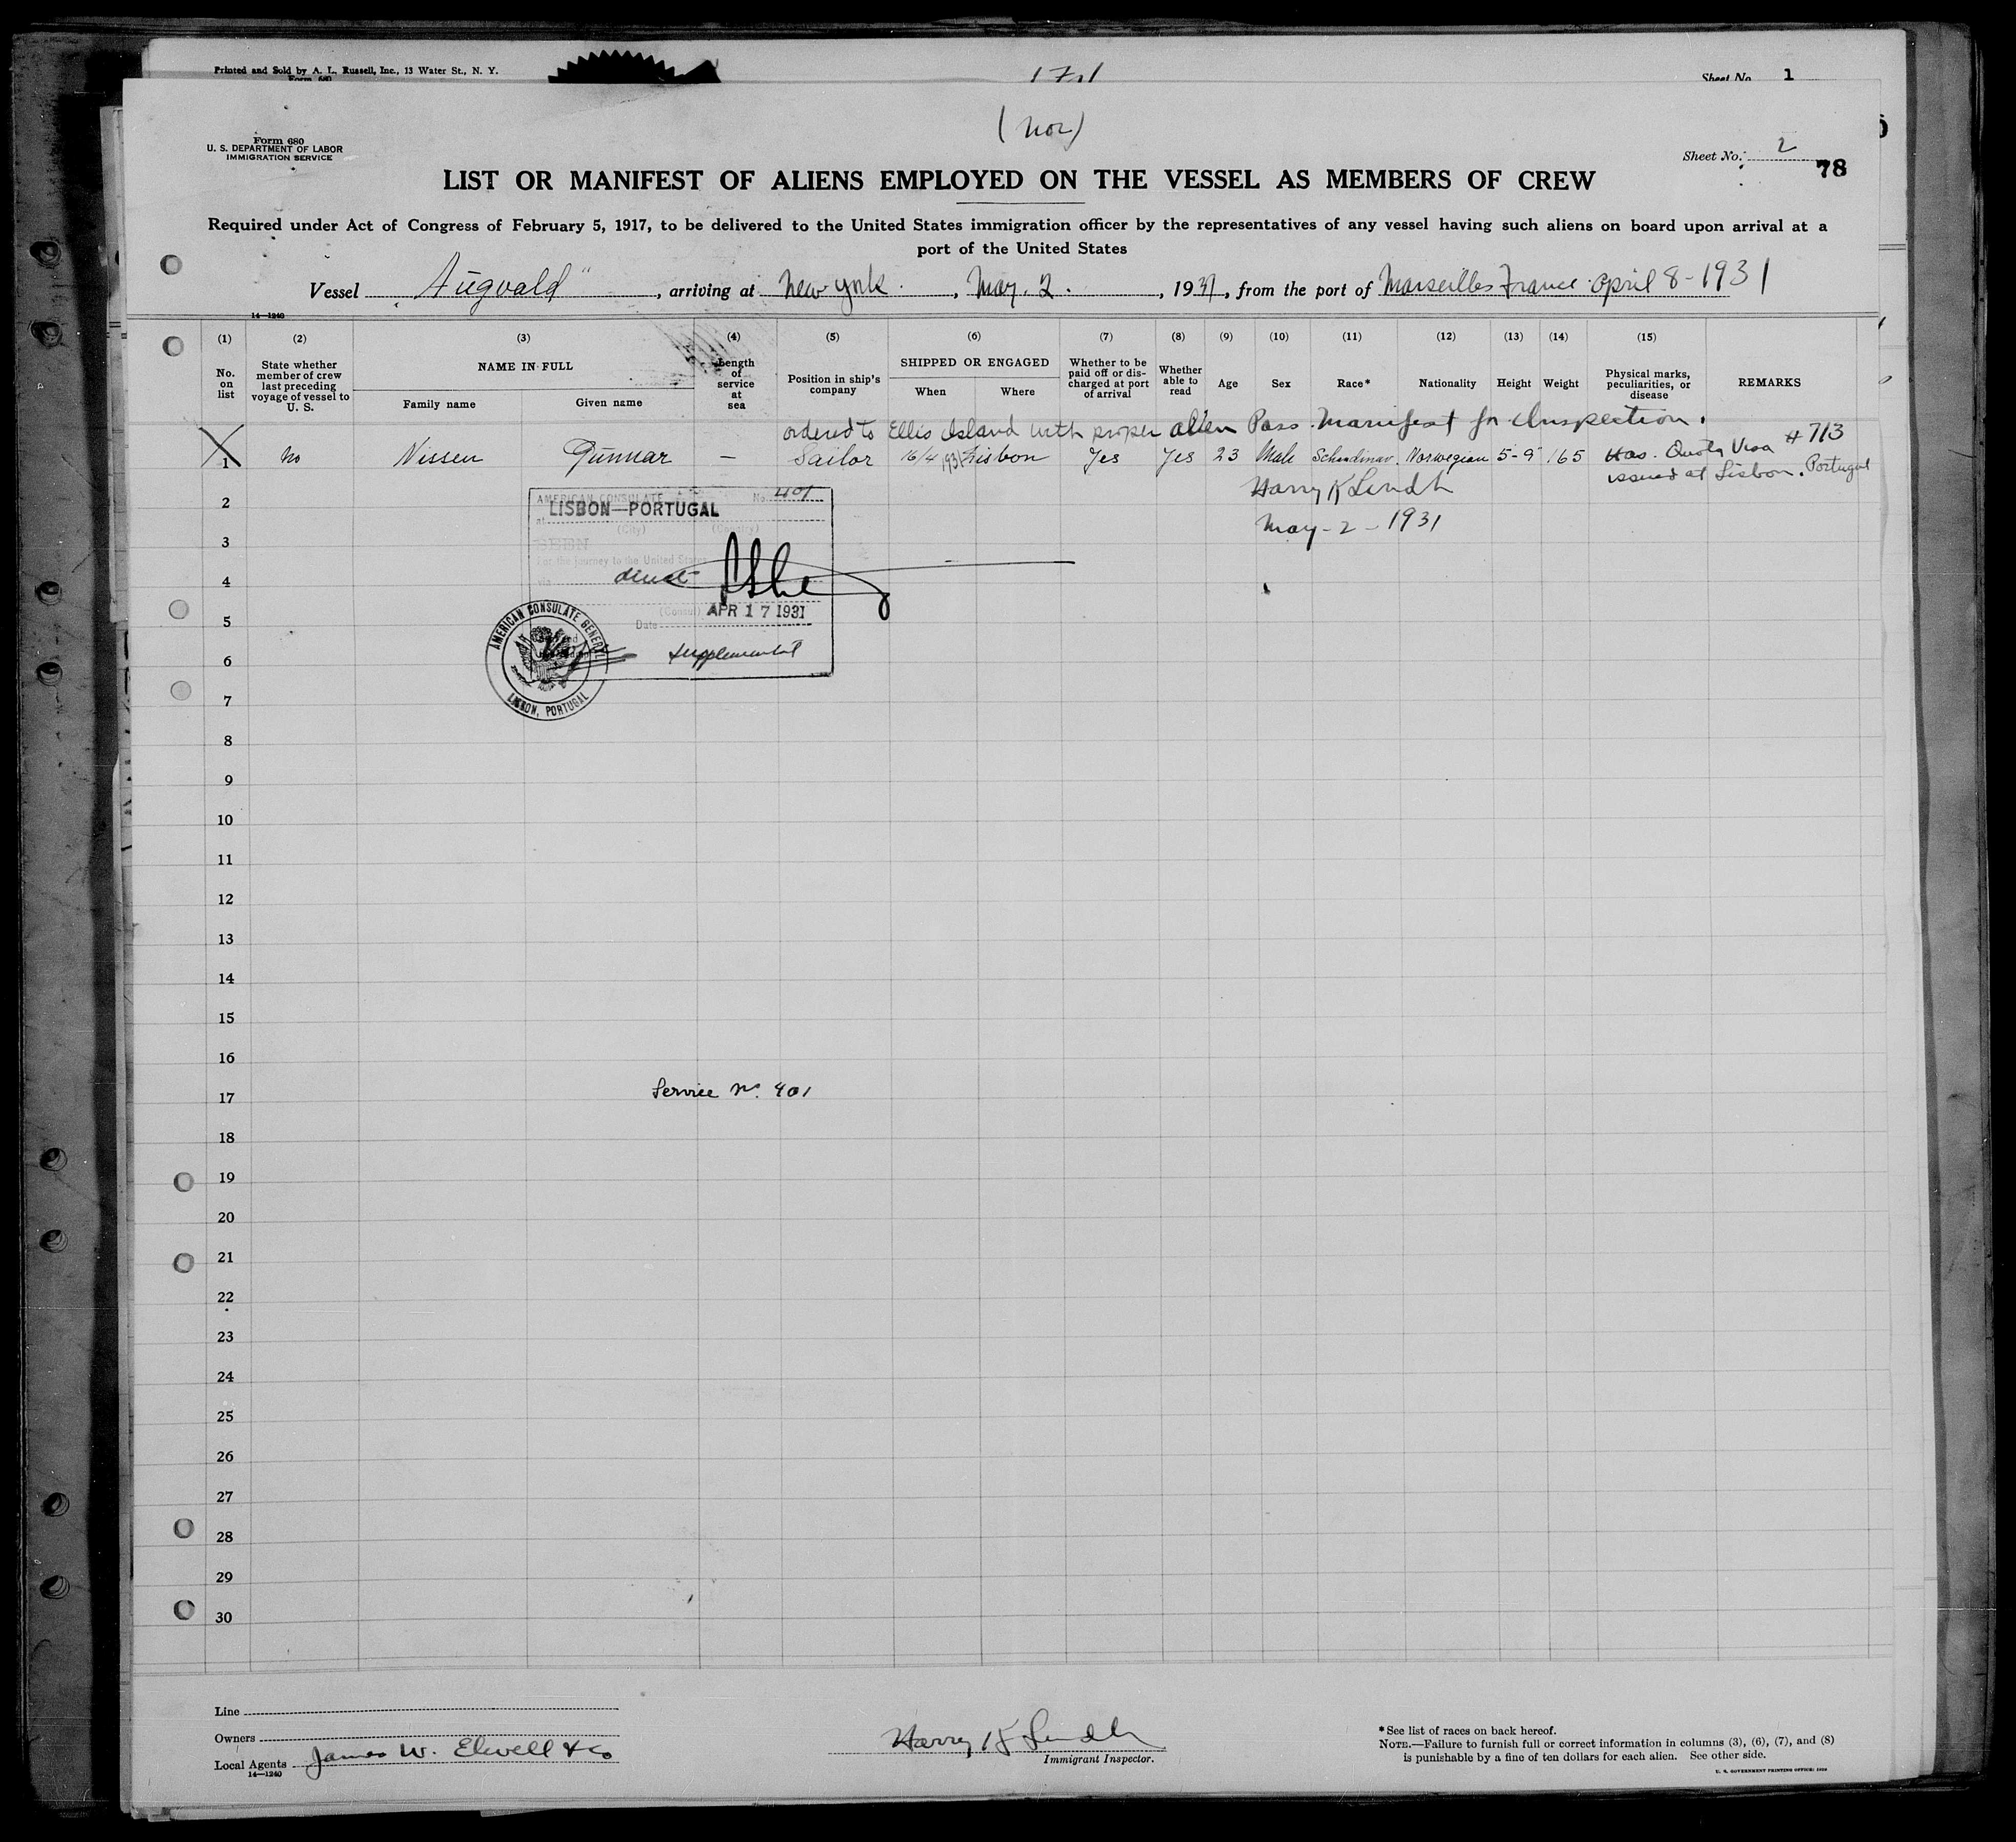 Printed and Sold by A. L. Russell, Inc., 13 Water St., N. Y.
Form 680
Sheet No. 1
(Nor)
Form 680
U. S. DEPARTMENT OF LABOR
IMMIGRATION SERVICE
Sheet No. 2
78
LIST OR MANIFEST OF ALIENS EMPLOYED ON THE VESSEL AS MEMBERS OF CREW
Required under Act of Congress of February 5, 1917, to be delivered to the United States immigration officer by the representatives of any vessel having such aliens on board upon arrival at a
port of the United States
Vessel Augvald", arriving at New York, May. 2., 1931, from the port of Marseilles France April 8-1931
14—1240
(1) (2) (3) (4) (5) (6) (7) (8) (9) (10) (11) (12) (13) (14) (15)
No. on list
State whether member of crew last preceding voyage of vessel to U. S.
NAME IN FULL
Family name
Given name
Length of service at sea
Position in ship's company
SHIPPED OR ENGAGED
When
Where
Whether to be paid off or discharged at port of arrival
Whether able to read
Age
Sex
Race*
Nationality
Height
Weight
Physical marks, peculiarities, or disease
REMARKS
ordered to Ellis Island with proper alien Pass. Manifest for Inspection.
1 No Nissen Gunnar — Sailor 16/4 1931 Lisbon Yes Yes 23 Male Schandinav. Norwegian 5-9 165 Has. Quota Visa #713
issued at Lisbon. Portugal
Harry K Lindh
May-2-1931
2
3
4
5
6
7
8
9
10
11
12
13
14
15
16
17
18
19
20
21
22
23
24
25
26
27
28
29
30
AMERICAN CONSULATE No. 401
at LISBON—PORTUGAL
(City) (Country)
SEEN
For the journey to the United States
via direct
(Consul)
Date APR 17 1931
supplemental
AMERICAN CONSULATE GENERAL
LISBON, PORTUGAL
Service No. 401
Line
Owners
Local Agents James W. Elwell & Co
14—1240
Harry K Lindh
Immigrant Inspector.
*See list of races on back hereof.
NOTE.—Failure to furnish full or correct information in columns (3), (6), (7), and (8)
is punishable by a fine of ten dollars for each alien. See other side.